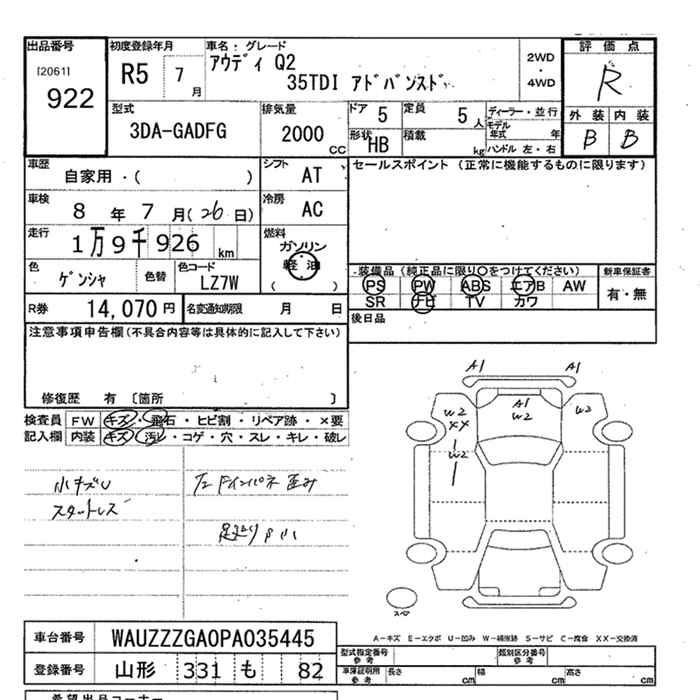 出品番号
[2061]
922
初度登録年月
R5 7月
車名・グレード
アウディ Q2
35TDI アドバンスド
2WD
・
4WD
評価点
R
外装 内装
B B
型式
3DA-GADFG
排気量
2000 CC
ドア 5
定員 5人
形状 HB
積載 kg
ディーラー・並行
モデル年式 年
ハンドル 左・右
車歴
自家用・( )
シフト AT
セールスポイント (正常に機能するものに限ります)
車検
8年 7月(26日)
冷房 AC
走行
1万9千926 km
燃料
ガソリン
軽油
( )
色 ゲンシャ
色替
色コード LZ7W
装備品(純正品に限り○をつけてください)
PS PW ABS エアB AW
SR ナビ TV カワ
新車保証書
有・無
R券 14,070円
名変通知期限 月 日
後日品
注意事項申告欄(不具合内容等は具体的に記入して下さい)
修復歴 有 [箇所 ]
検査員 FW キズ・飛石・ヒビ割・リペア跡・×要
記入欄 内装 キズ・汚レ・コゲ・穴・スレ・キレ・破レ
小キズU
スタットレス
左ドインパネ歪み
A1 A1
A1
W2
W2
XX
W2
W2
スペア
A-キズ E-エクボ U-凹み W-補修跡 S-サビ C-腐食 XX-交換済
車台番号 WAUZZZGA0PA035445
登録番号 山形 331 も 82
型式指定番号 参考
類別区分番号 参考
車庫証明用 参考
長さ cm 幅 cm 高さ cm
希望出品コーナー